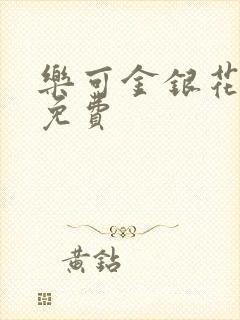 樂可金銀花
免費
黃鉆